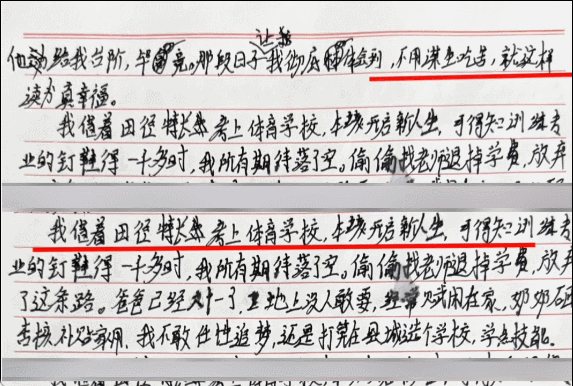 让我
他给我台阶,毕竟。那段日子我彻底体会到,不用谋生吃苦,就这样
读书真幸福。
我借着田径特长生考上体育学校,本该开启新人生,可得知训练专
业的钉鞋得一千多时,我所有期待落了空。偷偷找老师退掉学费,放弃
我借着田径特长生考上体育学校,本该开启新人生,可得知训练专
业的钉鞋得一千多时,我所有期待落了空。偷偷找老师退掉学费,放弃
了这条路。爸爸已经六十了,工地上没人敢要,经常赋闲在家,
补贴家用,我不敢任性追梦,还是打算在县城选个学校,学点技能。